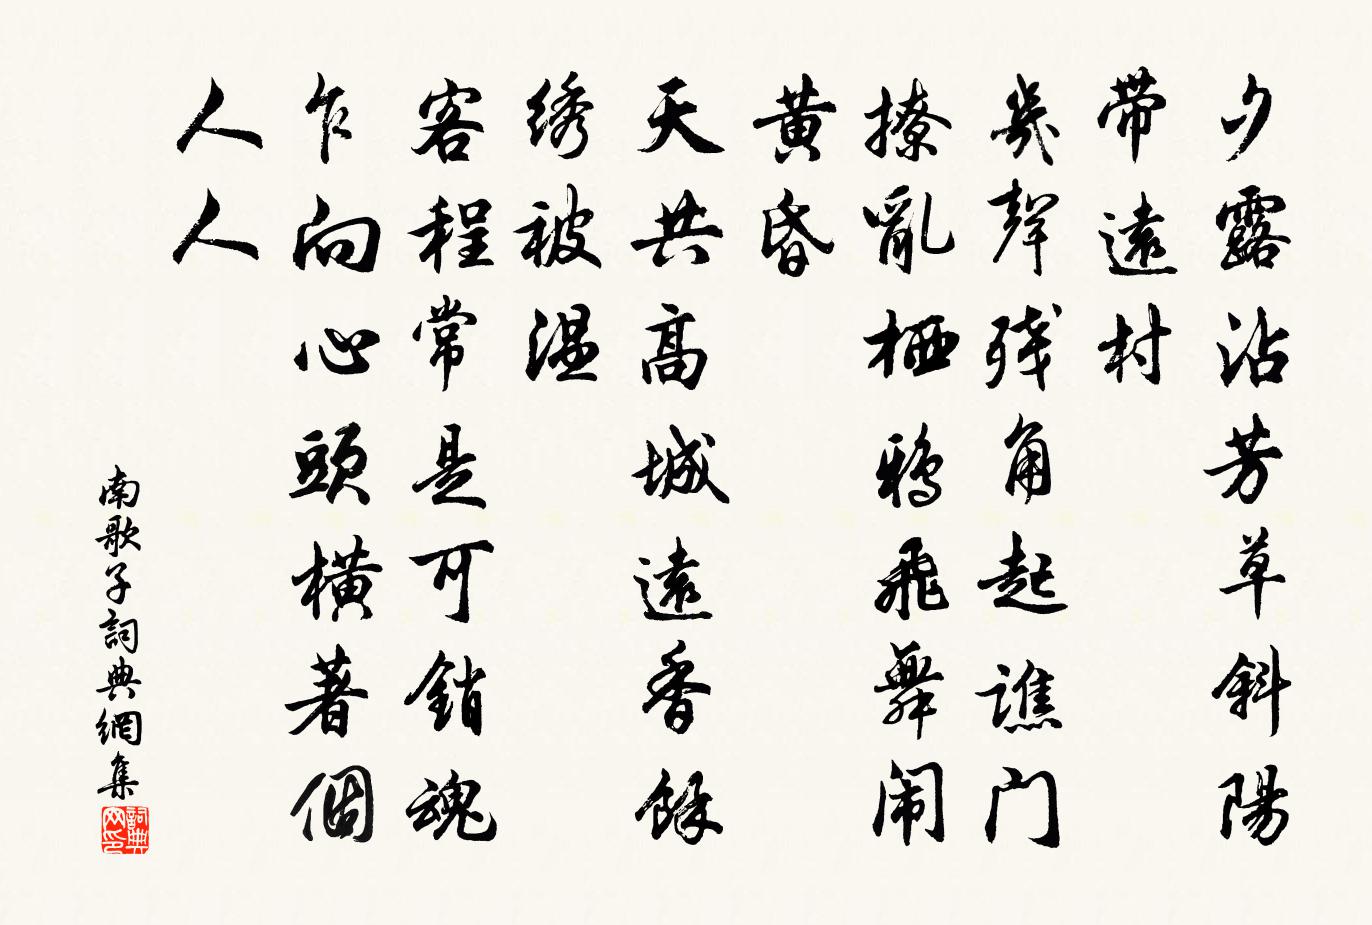 夕露沾芳草斜陽
带遠村
幾聲残角起譙门
撩亂栖鴉飛舞闹
黄昏
天共高城遠香餘
绣被温
客程常是可銷魂
乍向心頭横著個
人人
南歌子詞典網集
詞典网印